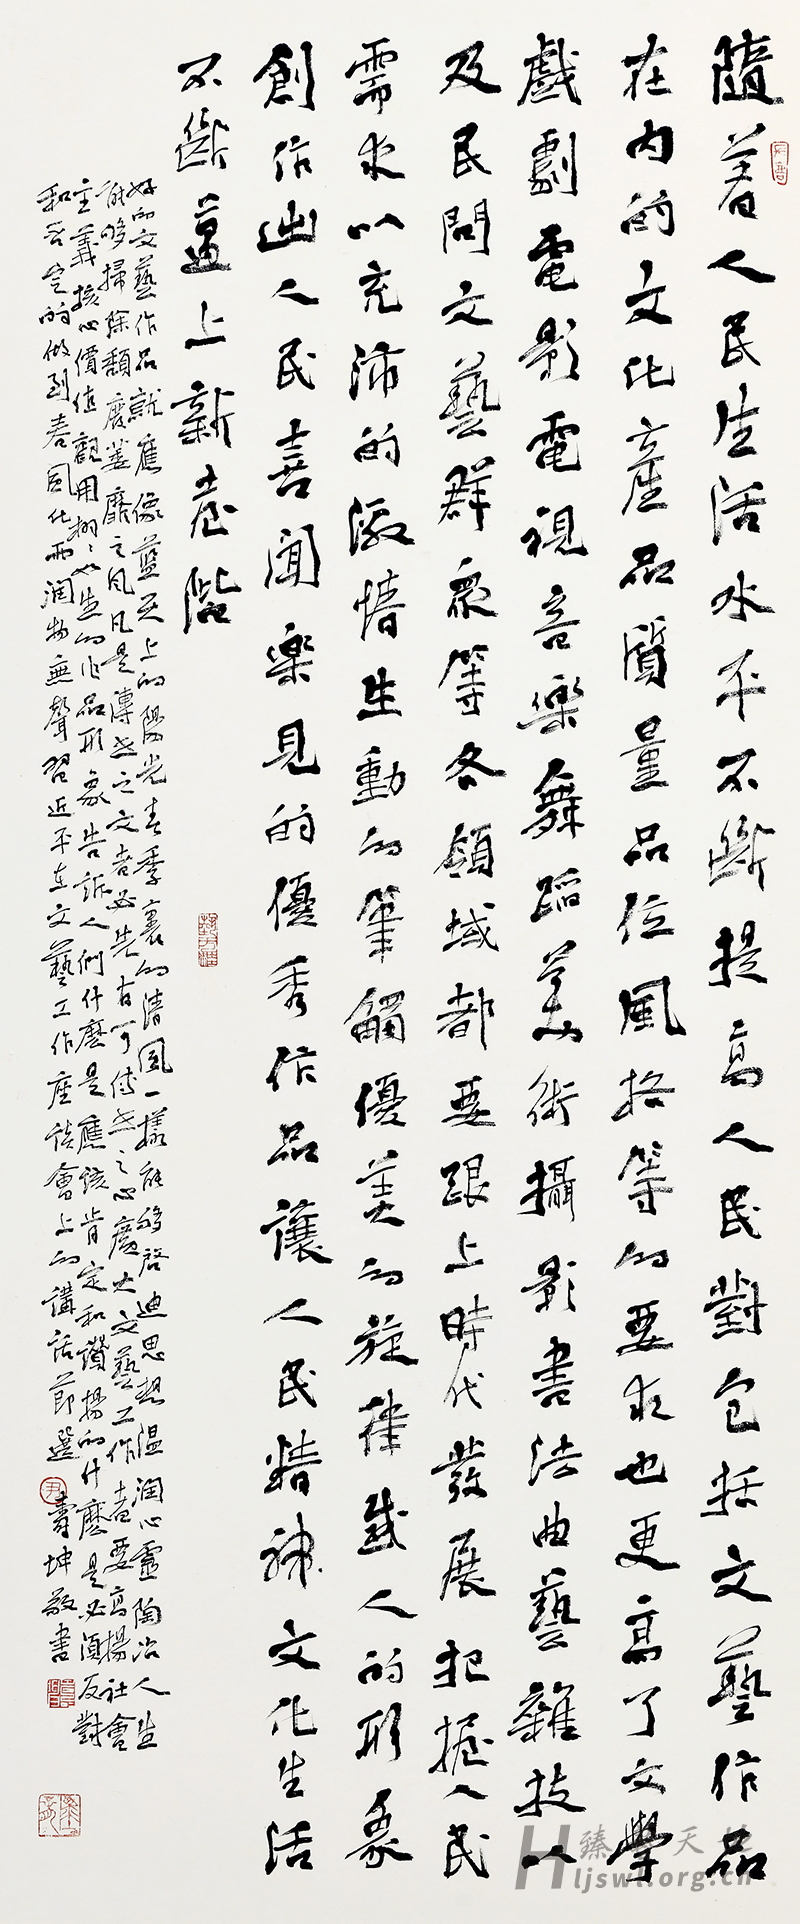 隨着人民生活水平不斷提高人民對包括文藝作品
在内的文化產品質量品位風格等的要求也更高了文學
戲劇電影電視音樂舞蹈美術攝影書法曲藝雜技以
及民間文藝群衆等各領域都要跟上時代發展把握人民
需求以充沛的激情生動的筆觸優美的旋律感人的形象
創作出人民喜聞樂見的優秀作品讓人民精神文化生活
不斷邁上新臺階
好的文藝作品就應像藍天上的陽光春季裏的清風一樣能够啓迪思想温潤心靈陶冶人生
能够掃除頹廢萎靡之風凡是傳世之文者必先有可傳世之心廣大文藝工作者要高揚社會
主義核心價值觀用栩栩如生的作品形象告訴人們什麽是應該肯定和讚揚的什麽是必須反對
和否定的做到春風化雨潤物無聲習近平在文藝工作座談會上的講話節選 壽坤敬書
臻 天
ljswl.org.cn